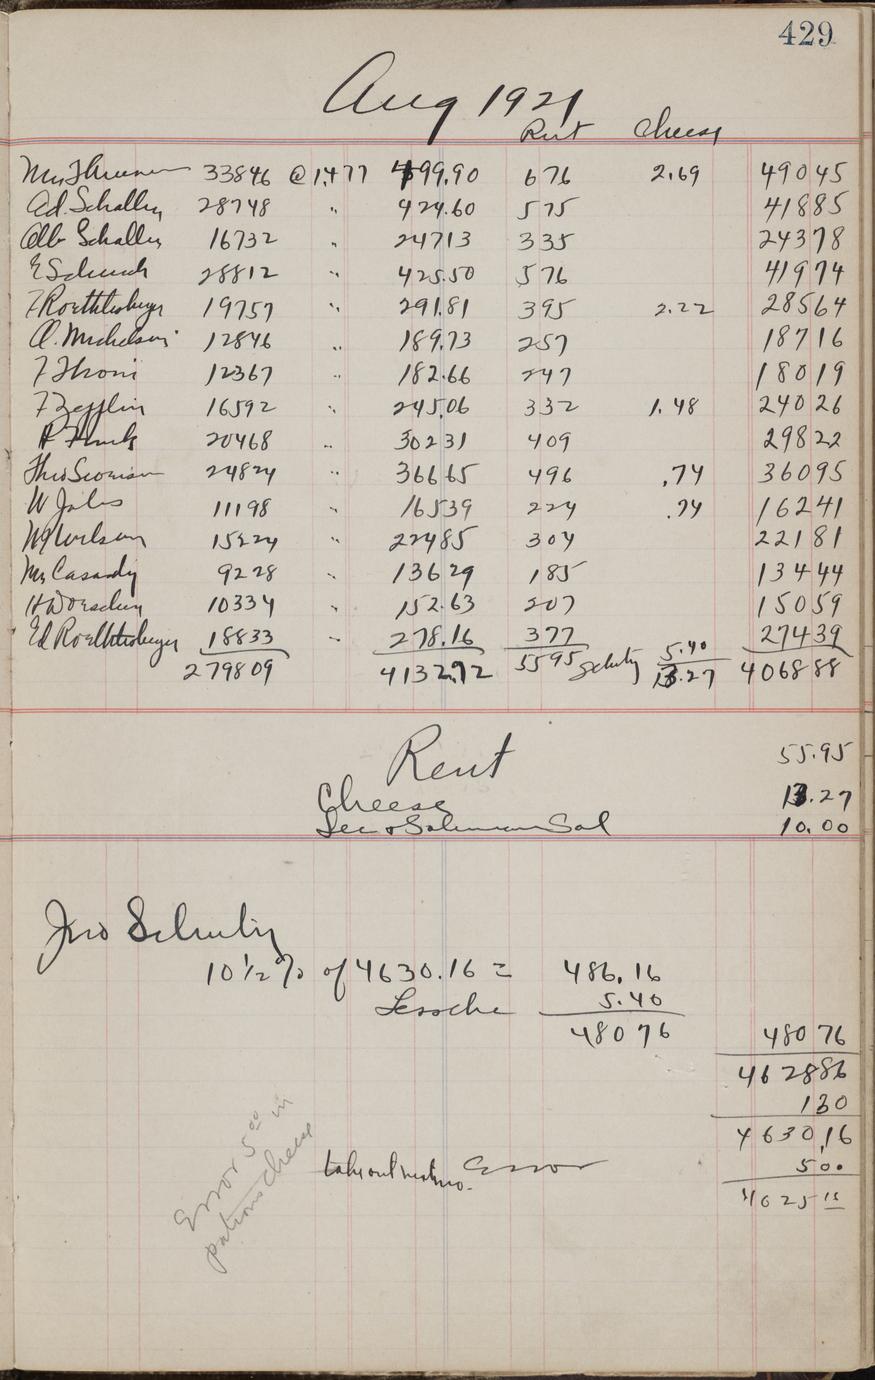 429
Aug 1921
Rent Cheese
33846 @ 1.477 499.90 676 2.69 49045
Ad. Schaller 28748 " 424.60 575 41885
Alb Schaller 16732 " 24713 335 24378
E Schuch 28812 " 425.50 576 41974
F Roethlisberger 19757 " 291.81 395 2.22 28564
A. Michelson 12846 " 189.73 257 18716
F Thoni 12367 " 182.66 247 18019
F Zefflin 16592 " 245.06 332 1.48 24026
20468 " 30231 409 29822
24824 " 36665 496 .74 36095
W 11198 " 16539 224 .74 16241
Wilson 15224 " 22485 304 22181
Casandy 9228 " 13629 185 13444
H 10334 " 152.63 207 15059
Ed Roethlisberger 18833 " 278.16 377 5.40 27439
279809 4132.72 5595 13.27 406888
Rent 55.95
Cheese 13.27
Sec & Sal 10.00
Jno
10 1/2 % of 4630.16 = 486.16
5.40
48076 48076
462886
130
4630.16
Error 5.00 in
patrons cheese
take out next mo. Error 500
4625 16